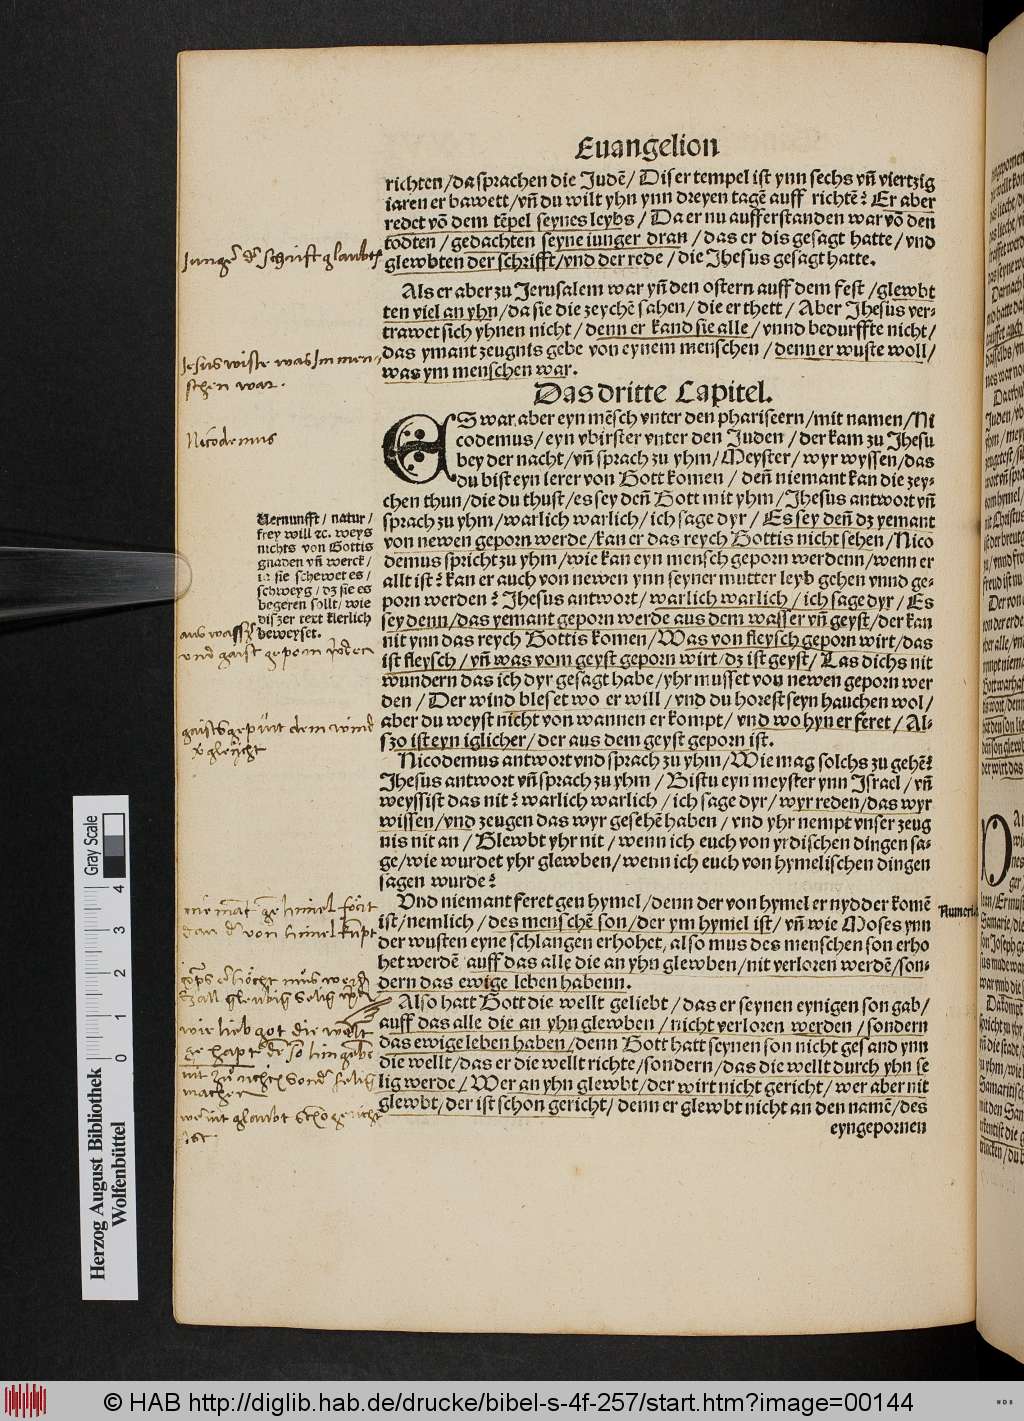 Euangelion
richten/da sprachen die Judē/ Diser tempel ist ynn sechs vñ viertzig
iaren erbawett/vñ du wilt yhn ynn dreyen tagē auff richtē? Er aber
redet vō dem tēpel seynes leybs/ Da er nu aufferstanden war vō den
todten/ gedachten seyne iunger dran/ das er dis gesagt hatte/ vnd
glewbten der schrifft/vnd der rede/ die Jhesus gesagt hatte.
Junger der schrift glaubten
Als er aber zu Jerusalem war yñ den ostern auff dem fest/ glewbt
ten viel an yhn/da sie die zeychē sahen/ die er thett/ Aber Jhesus ver-
trawet sich yhnen nicht/ denn er kand sie alle/ vnnd bedurffte nicht/
das ymant zeugnis gebe von eynem menschen/ denn er wuste woll/
was ym menschen war.
Jesus wiste was Im men-
schen war.
Das dritte Capitel.
ES war aber eyn mēsch vnter den phariseern/mit namen/Ni
codemus/ eyn vbirster vnter den Juden/ der kam zu Jhesu
bey der nacht/ vñ sprach zu yhm/ Meyster/ wyr wyssen/das
du bist eyn lerer von Gott komen/ deñ niemant kan die zey-
chen thun/die du thust/es sey deñ Gott mit yhm/ Jhesus antwort vñ
sprach zu yhm/warlich warlich/ ich sage dyr/ Es sey deñ dz yemant
von newen geporn werde/kan er das reych Gottis nicht sehen/ Nico
demus spricht zu yhm/wie kan eyn mensch geporn werdenn/wenn er
allt ist? kan er auch von newen ynn seyner mutter leyb gehen vnnd ge-
porn werden? Jhesus antwort/ warlich warlich/ ich sage dyr/ Es
sey denn/das yemant geporn werde aus dem wasser vñ geyst/der kan
nit ynn das reych Gottis komen/ Was von fleysch geporn wirt/das
ist fleysch/ vñ was vom geyst geporn wirt/ dz ist geyst/ Las dichs nit
wundern das ich dyr gesagt habe/yhr musset von newen geporn wer
den/ Der wind bleset wo er will/ vnd du horest seyn hauchen wol/
aber du weyst nicht von wannen er kompt/ vnd wo hyn er feret/ Al-
szo ist eyn iglicher/ der aus dem geyst geporn ist.
Nicodemus
Vernunfft/ natur/
frey will ꝛc. weys
nichts von Gottis
gnaden vñ werck/
ia sie schewet es/
schweyg/ dz sie es
begeren sollt/ wie
diszer text klerlich
beweyset.
aus wasser
und gaist geporn
gaists gepurt dem wind
Nicodemus antwort vnd sprach zu yhm/ Wie mag solchs zu gehē?
Jhesus antwort vñ sprach zu yhm/ Bistu eyn meyster ynn Israel/ vñ
weyssist das nit? warlich warlich/ ich sage dyr/ wyr reden/das wyr
wissen/vnd zeugen das wyr gesehē haben/ vnd yhr nempt vnser zeug
nis nit an/ Glewbt yhr nit/ wenn ich euch von yrdischen dingen sa-
ge/wie wurdet yhr glewben/wenn ich euch von hymelischen dingen
sagen wurde?
Vnd niemant feret gen hymel/denn der von hymel er nydder komē
ist/nemlich/ des menschē son/ der ym hymel ist/ vñ wie Moses ynn
der wusten eyne schlangen erhohet, also mus des menschen son erho
het werdē auff das alle die an yhn glewben/nit verloren werdē/son-
dern das ewige leben habenn.
Numeri.
Also hatt Gott die wellt geliebt/ das er seynen eynigen son gab/
auff das alle die an yhn glewben/ nicht verloren werden/ sondern
das ewige leben haben/denn Gott hatt seynen son nicht gesand ynn
die wellt/das er die wellt richte/sondern/das die wellt durch yhn se
lig werde/ Wer an yhn glewbt/der wirt nicht gericht/ wer aber nit
glewbt/der ist schon gericht/ denn er glewbt nicht an den namē/des
eyngepornen
wie lieb got die welt
machen
Gray Scale
0 1 2 3 4
Herzog August Bibliothek
Wolfenbüttel
© HAB http://diglib.hab.de/drucke/bibel-s-4f-257/start.htm?image=00144